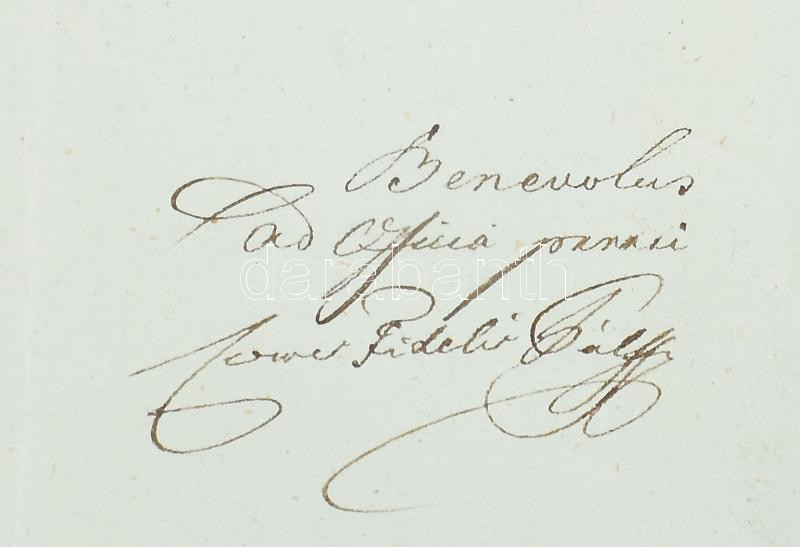 Benevolus
ad Officia
darabanth
Comes Fidelis Pálffy